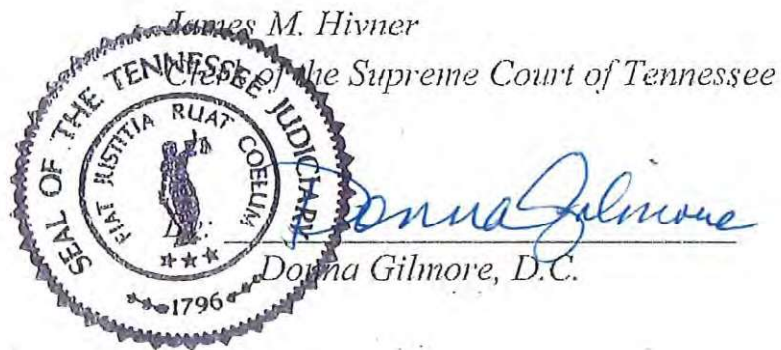 James M. Hivner
Clerk of the Supreme Court of Tennessee
SEAL OF THE TENNESSEE JUDICIARY
FIAT JUSTITIA RUAT COELUM
1796
By: Donna Gilmore
Donna Gilmore, D.C.